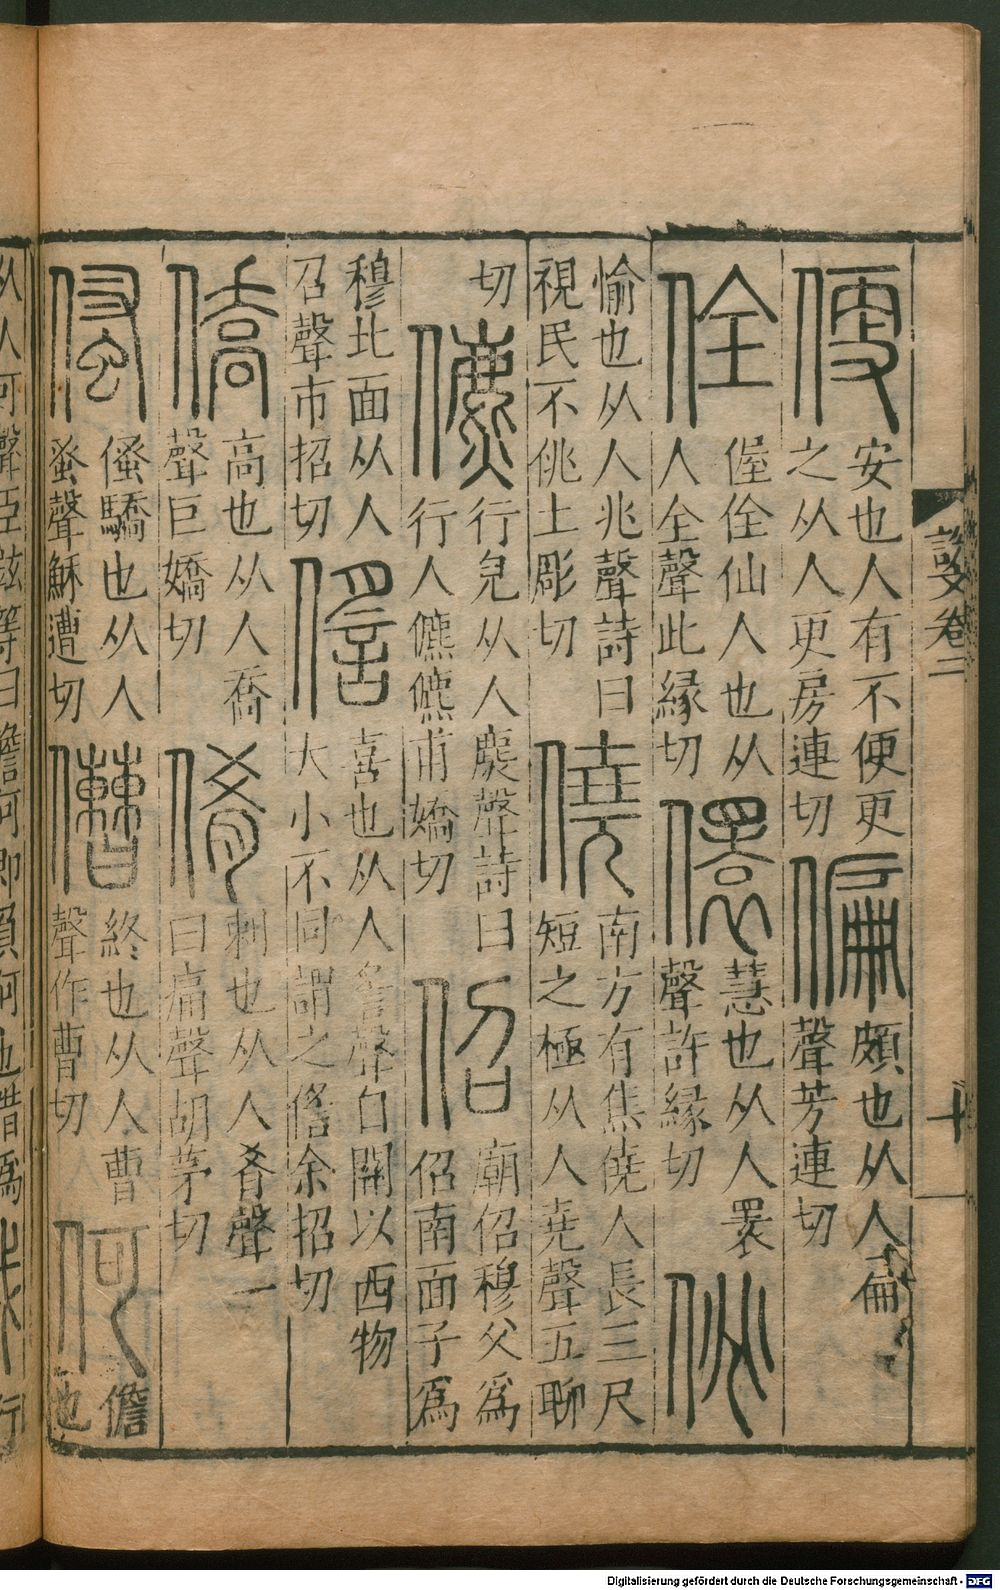 說文卷三
十
便
安也人有不便更
之从人更房連切
偏
頗也从人扁
聲芳連切
佺
偓佺仙人也从
人全聲此緣切
儇
慧也从人睘
聲許緣切
佻
愉也从人兆聲詩曰
視民不佻土彫切
僥
南方有焦僥人長三尺
短之極从人堯聲五聊
切
儦
行皃从人麃聲詩曰
行人儦儦甫嬌切
佋
廟佋穆父爲
佋南面子爲
穆北面从人
召聲市招切
㑾
喜也从人䚻聲自關以西物
大小不同謂之㑾余招切
僑
高也从人喬
聲巨嬌切
倄
刺也从人肴聲一
曰痛聲胡茅切
驕也从人
蚤聲穌遭切
傮
終也从人曹
聲作曹切
何
儋
也
从人可聲臣鉉等曰儋何即負何也借爲
行
Digitalisierung gefördert durch die Deutsche Forschungsgemeinschaft - DFG